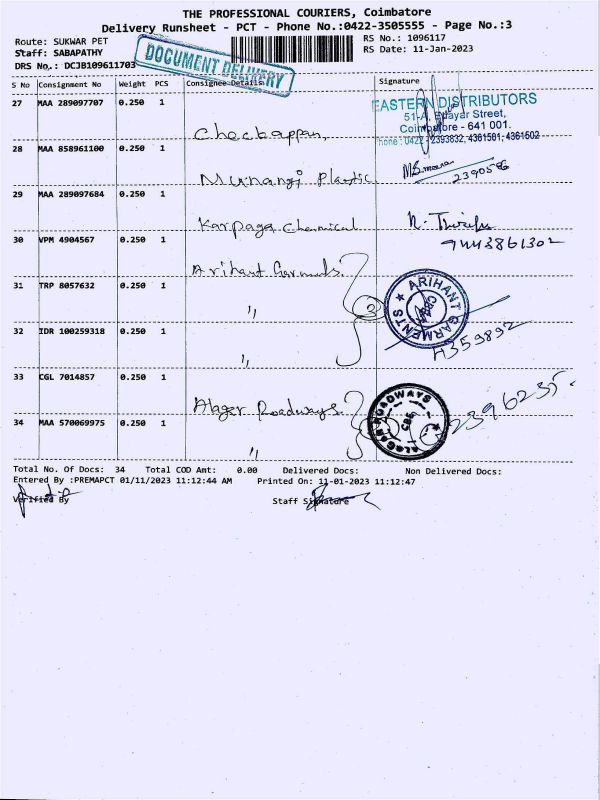 THE PROFESSIONAL COURIERS, Coimbatore
Delivery Runsheet - PCT - Phone No.:0422-3505555 - Page No.:3
Route: SUKWAR PET
RS No.: 1096117
Staff: SABAPATHY
RS Date: 11-Jan-2023
DRS No.: DCJB109611703
DOCUMENT DELIVERY
S No Consignment No Weight PCS Consignee Details Signature
27 MAA 289097707 0.250 1
EASTERN DISTRIBUTORS
Street,
Coimbatore - 641 001.
Phone : 0422 - 2393832, 4361501, 4361502
28 MAA 858961100 0.250 1
Plastic
2390586
29 MAA 289097684 0.250 1
Karpaga Chemical
30 VPM 4904567 0.250 1
Arihant Garments
9443861302
31 TRP 8057632 0.250 1
"
3
ARIHANT GARMENTS
CBE
32 IDR 100259318 0.250 1
"
4359892
33 CGL 7014857 0.250 1
Alager Roadways
ALAGAR ROADWAYS
CBE
2396235
34 MAA 570069975 0.250 1
"
Total No. Of Docs: 34 Total COD Amt: 0.00 Delivered Docs: Non Delivered Docs:
Entered By :PREMAPCT 01/11/2023 11:12:44 AM Printed On: 11-01-2023 11:12:47
Verified By
Staff Signature